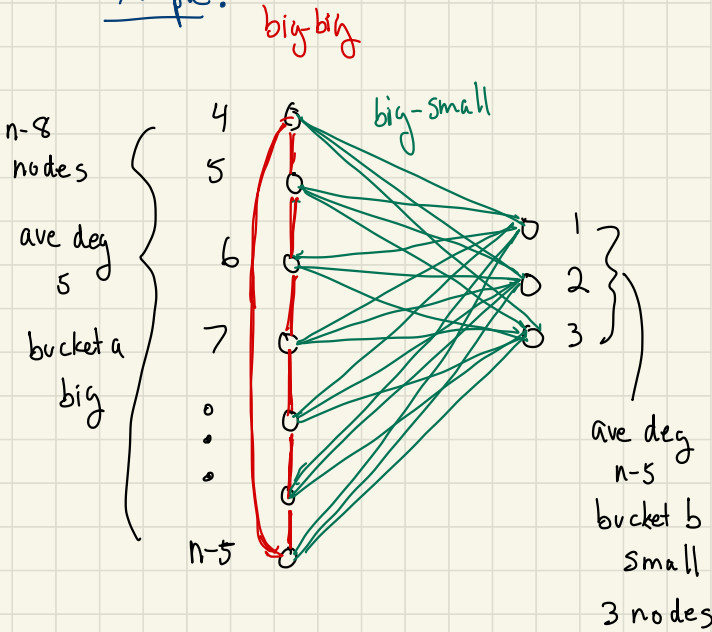 big-big
big-small
n-8
nodes
ave deg
5
bucket a
big
4
5
6
7
n-5
1
2
3
ave deg
n-5
bucket b
small
3 nodes